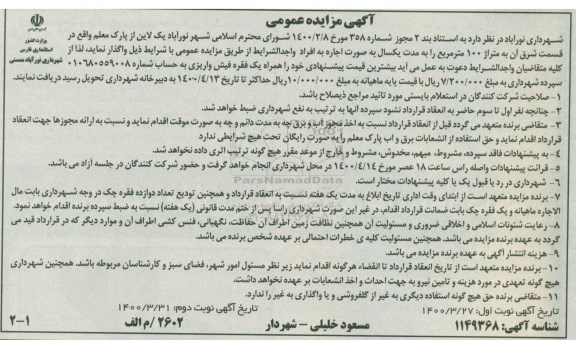 آگهی مزایده عمومی
وزارت کشور
استانداری فارس
شهرداری نورآباد ممسنی
شهرداری نورآباد در نظر دارد به استناد بند ۲ مجوز شماره ۳۵۸ مورخ ۱۴۰۰/۲/۸ شورای محترم اسلامی شهر نورآباد یک لاین از پارک معلم واقع در
قسمت شرق آن به متراژ ۱۰۰ مترمربع را به مدت یکسال به صورت اجاره به افراد واجدالشرایط از طریق مزایده عمومی با شرایط ذیل واگذار نماید، لذا از
کلیه متقاضیان واجدالشرایط دعوت به عمل می آید بیشترین قیمت پیشنهادی خود را همراه یک فقره فیش واریزی به حساب شماره ۰۱۰۶۸۰۵۵۹۰۰۸
سپرده شهرداری به مبلغ ۷/۲۰۰/۰۰۰ ریال با قیمت پایه ماهیانه به مبلغ ۱۰/۰۰۰/۰۰۰ ریال حداکثر تا تاریخ ۱۴۰۰/۴/۱۳ به دبیرخانه شهرداری تحویل رسید دریافت نمایند.
۱- صلاحیت شرکت کنندگان در استعلام بایستی مورد تائید مراجع ذیصلاح باشد.
۲- چنانچه نفر اول تا سوم حاضر به انعقاد قرارداد نشود سپرده آنها به ترتیب به نفع شهرداری ضبط خواهد شد.
۳- متقاضی برنده متعهد می گردد قبل از انعقاد قرارداد نسبت به اخذ مجوز آب و برق چه به مدت دائم و چه به صورت موقت اقدام نماید و نسبت به ارائه مجوزها جهت انعقاد
قرارداد اقدام نماید و حق استفاده از انشعابات برق و آب پارک معلم را به صورت رایگان تحت هیچ شرایطی ندارد
۴- به پیشنهادات فاقد سپرده، مشروط، مبهم، مخدوش، مشروط و خارج از موعد مقرر هیچ گونه ترتیب اثری داده نخواهد شد.
۵- قرائت پیشنهادات واصله راس ساعت ۱۸ عصر مورخ ۱۴۰۰/۴/۱۴ در محل شهرداری انجام خواهد گرفت و حضور شرکت کنندگان در جلسه آزاد می باشد.
۶- شهرداری در رد یا قبول یک یا کلیه پیشنهادات مختار است.
۷- برنده مزایده متعهد است از ابتدای وقت اداری تاریخ ابلاغ به مدت یک هفته نسبت به انعقاد قرارداد و همچنین تودیع تعداد دوازده فقره چک در وجه شهرداری بابت مال
الاجاره ماهیانه و یک فقره چک بابت ضمانت قرارداد اقدام، در غیر این صورت شهرداری راسا پس از ختم مدت قانونی (یک هفته) نسبت به ضبط سپرده برنده اقدام خواهد نمود.
۸- رعایت شئونات اسلامی و اخلاقی ضروری و مسئولیت آن همچنین نظافت زمین اطراف آن حفاظت، نگهبانی، فنس کشی اطراف آن و موارد دیگر که در قرارداد قید می
گردد به عهده برنده مزایده می باشد. همچنین مسئولیت کلیه ی خطرات احتمالی بر عهده شخص برنده می باشد.
۹- هزینه انتشار آگهی به عهده برنده مزایده می باشد.
۱۰- برنده مزایده متعهد است از تاریخ انعقاد قرارداد تا انقضاء هرگونه اقدام نماید زیر نظر مسئول امور شهر، فضای سبز و کارشناسان مربوطه باشد. همچنین شهرداری
هیچ گونه تعهدی در مورد هزینه و تامین نیرو به جهت احداث و اخذ انشعابات بر عهده نخواهد داشت.
۱۱- متقاضی برنده حق هیچ گونه استفاده دیگری به غیر از گلفروشی و یا واگذاری به غیر را ندارد.
تاریخ آگهی نوبت اول: ۱۴۰۰/۳/۲۷ تاریخ آگهی نوبت دوم: ۱۴۰۰/۳/۳۱
شناسه آگهی: ۱۱۴۹۳۶۸ مسعود خلیلی - شهردار ۲۶۰۲/م الف ۲-۱
ParsNamadData